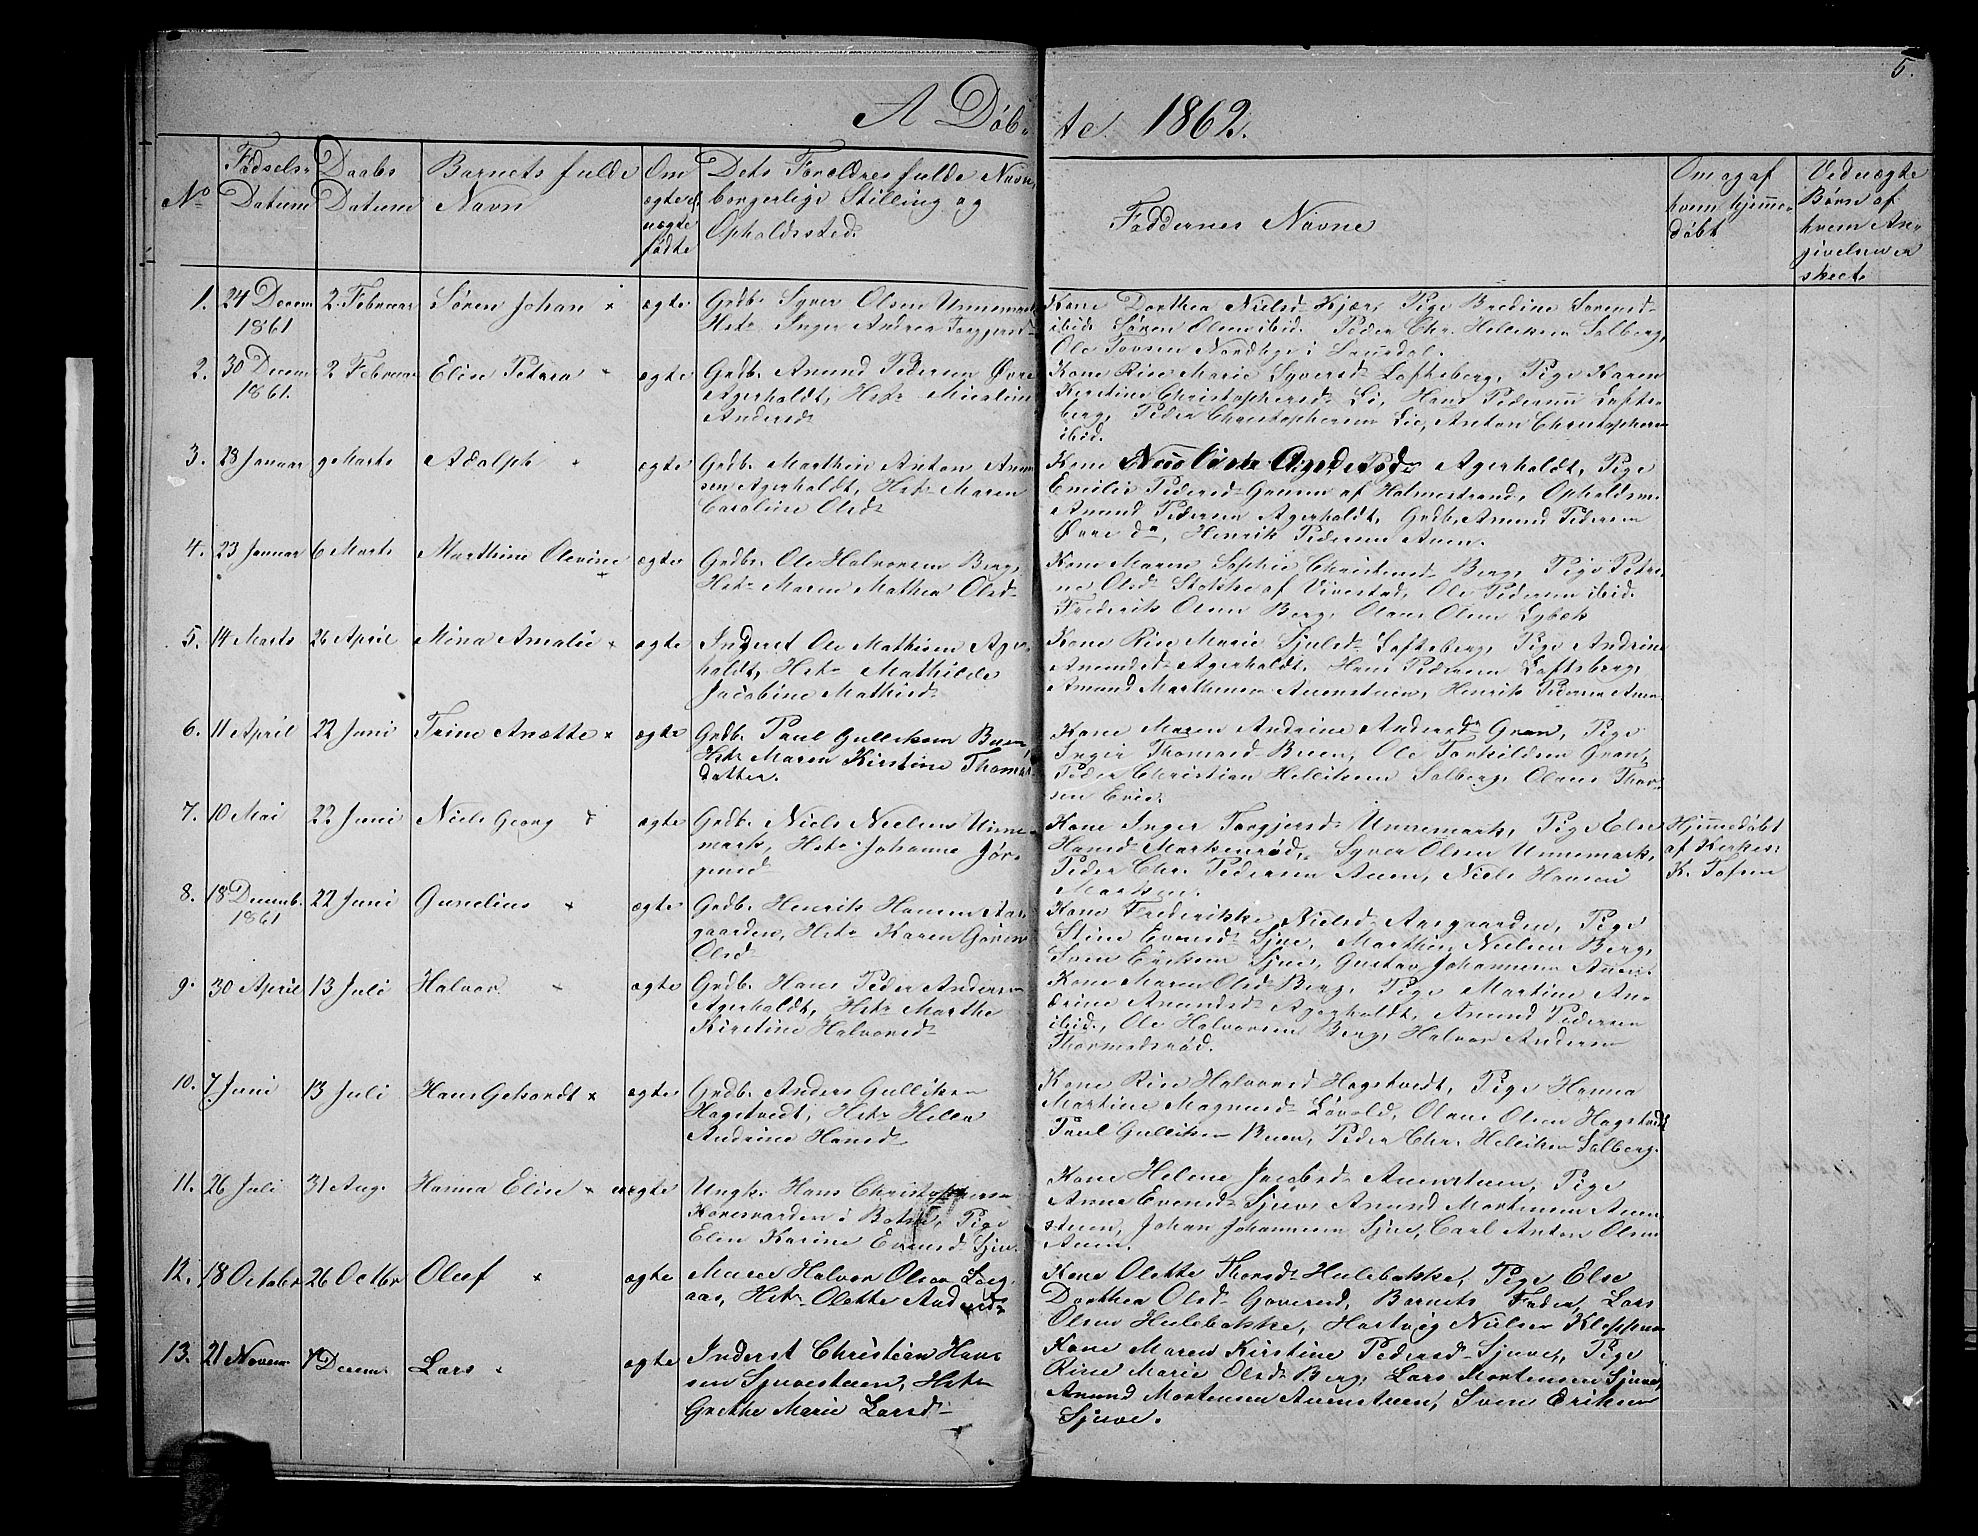 5.
A Døb-
te 1862.
No
Fødsels-
Datum
Daabs
Datum
Barnets fulde
Navn
Om
ægte el.
uægte
født
Dets Forældres fulde Navn,
borgerlige Stilling og
Opholdssted.
Faddernes Navne
Om og af
hvem hjemme-
døbt
Ved uægte
Børn af
hvem An-
givelsen er
skeet
1. 24 Decem 2. Februar Søren Johan × ægte Grdb. Syver Olsen Unnemark
1861 Hst. Inger Andrea Torgjersd
Kone Dorthea Nielsd Kjær, Pige Bredine Sørensd
ibid. Søren Olsen ibid. Peder Chr. Helliksen Solberg,
Ole Torsen Nordhye i Lausdal.
2. 30 Decem 2 Februar Elise Petera × ægte Grdb. Amund Pedersen Øvre
1861. Agerholdt, Hst.
Andersd
Kone Rise Marie Syversd Loftsberg, Pige Karen
Kirstine Christophersd Li, Hans Pedersen Lofts-
berg, Peder Christophersen Lie, Anton Christophersen
ibid.
3. 28 Januar 9 Marts Adolph × ægte Grdb. Marthin Anton Amun
sen Agerholdt, Hst. Maren
Caroline Olsd
Kone Andersd Agerholdt, Pige
Emilie Pedersd af Holmestrand, Opholdsm.
Amund Pedersen Agerholdt, Grdb. Amund Pedersen
Øvre do, Henrik Pedersen Auen.
4. 23 Januar 6 Marts Marthine Olevine × ægte Grdb. Ole Halvorsen Berg,
Hst. Maren Mathea Olsd
Kone Maren Sophie Christensd Berg, Pige Petri-
ne Olsd Stokke af Vivestad, Ole Pedersen ibid.
Frederik Olsen Berg, Olaus Olsen Lybek
5. 14 Marts 26 April Mina Amalie × ægte Inderst Ole Mathisen Ager-
holdt, Hst. Mathilde
Jacobine Mathisd
Kone Rise Marie Loftsberg, Pige Andrine
Amundsd Agerholdt, Hans Pedersen Loftsberg,
Amund Marthinsen Auenstuen, Henrik Pedersen Auen
6. 11 April 22 Juni Trine Anætte × ægte Grdb. Paul Gulliksen Buen,
Hst. Maren Kirstine Thomas
datter.
Kone Maren Andrine Andersd Gran, Pige
Inger Thomasd Buen, Ole Torkildsen Gran,
Peder Christian Helliksen Solberg, Olaus Thor-
sen
7. 10 Mai 22 Juni Niels Georg × ægte Grdb. Niels Nielsen Unne-
mark, Hst. Johanne Jør-
gensd
Kone Inger Torgjersd Unnemark, Pige Else
Hansd Markenrød, Syver Olsen Unnemark,
Peder Chr. Pedersen Auen, Niels Hansen
Hjemmedøbt
af Kirkes:
K. Tofsen
8. 18 Decemb. 22 Juni Gunelius × ægte Grdb. Henrik Hansen Aas-
1861 gaarden, Hst. Karen
Olsd
Kone Frederikke Nielsd Aasgaarden, Pige
Stine Evensd Sjue, Marthin Nielsen Berg,
Sven Eriksen Sjue, Gustav Johannesen
9. 30 April 13 Juli Halvor × ægte Grdb. Hans Peder Andersen
Agerholdt, Hst. Marthe
Kirstine Halvorsd
Kone Maren Olsd Berg, Pige Martine An-
drine Amundsd Agerholdt, Amund Pedersen
ibid., Ole Halvorsen Berg, Halvor Andersen
Thormodsrød.
10. 7 Juni 13 Juli Hans Gehardt × ægte Grdb. Anders Gulliksen
Hagstvedt, Hst. Helle
Andrine Hansd
Kone Rise Halvorsd Hagstvedt, Pige Hanna
Martine Magnusd Løvold, Olaus Olsen Hagstvedt
Paul Gulliksen Buen, Peder Chr. Helliksen Solberg.
11. 26 Juli 31 Aug. Hanna Elise × uægte Ungk. Hans Christophersen
i Botne, Pige
Elen Karine Evensd Sjue
Kone Helene Jacobsd Auenstuen, Pige
Anne Evensd Sjuve Amund Mortensen Auen-
stuen, Johan Johannesen Sjue, Carl Anton Olsen
Auen.
12. 18 Octobr 26 Octbr Oluf × ægte Murer Halvor Olsen
aas, Hst. Olette Andersd
Kone Olette Thorsd Hulebakke, Pige Else
Dorthea Olsd Goverud, Barnets Fader, Lars
Olsen Hulebakke, Hartvig Nielsen Kleppen
13. 21 Novem 7 Decem. Lars × ægte Inderst Christian Han-
sen Sjuvestuen, Hst.
Grethe Marie Larsd
Kone Maren Kirstine Pedersd Sjuve, Pige
Rine Marie Olsd Berg, Lars Mortensen Sjuve,
Amund Mortensen Auenstuen, Sven Eriksen
Sjuve.